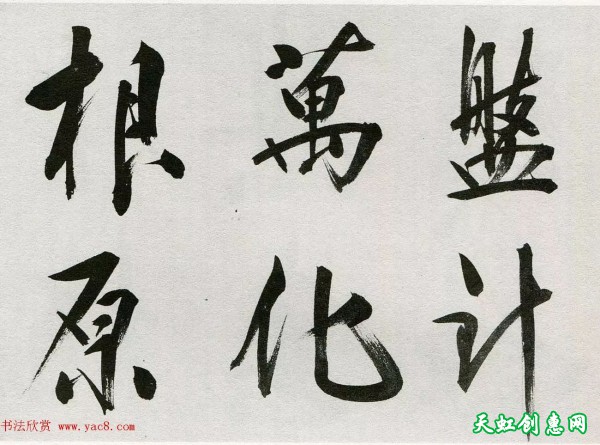 盤計
萬化
根原
书法欣赏 www.yac8.com
天虹创惠网